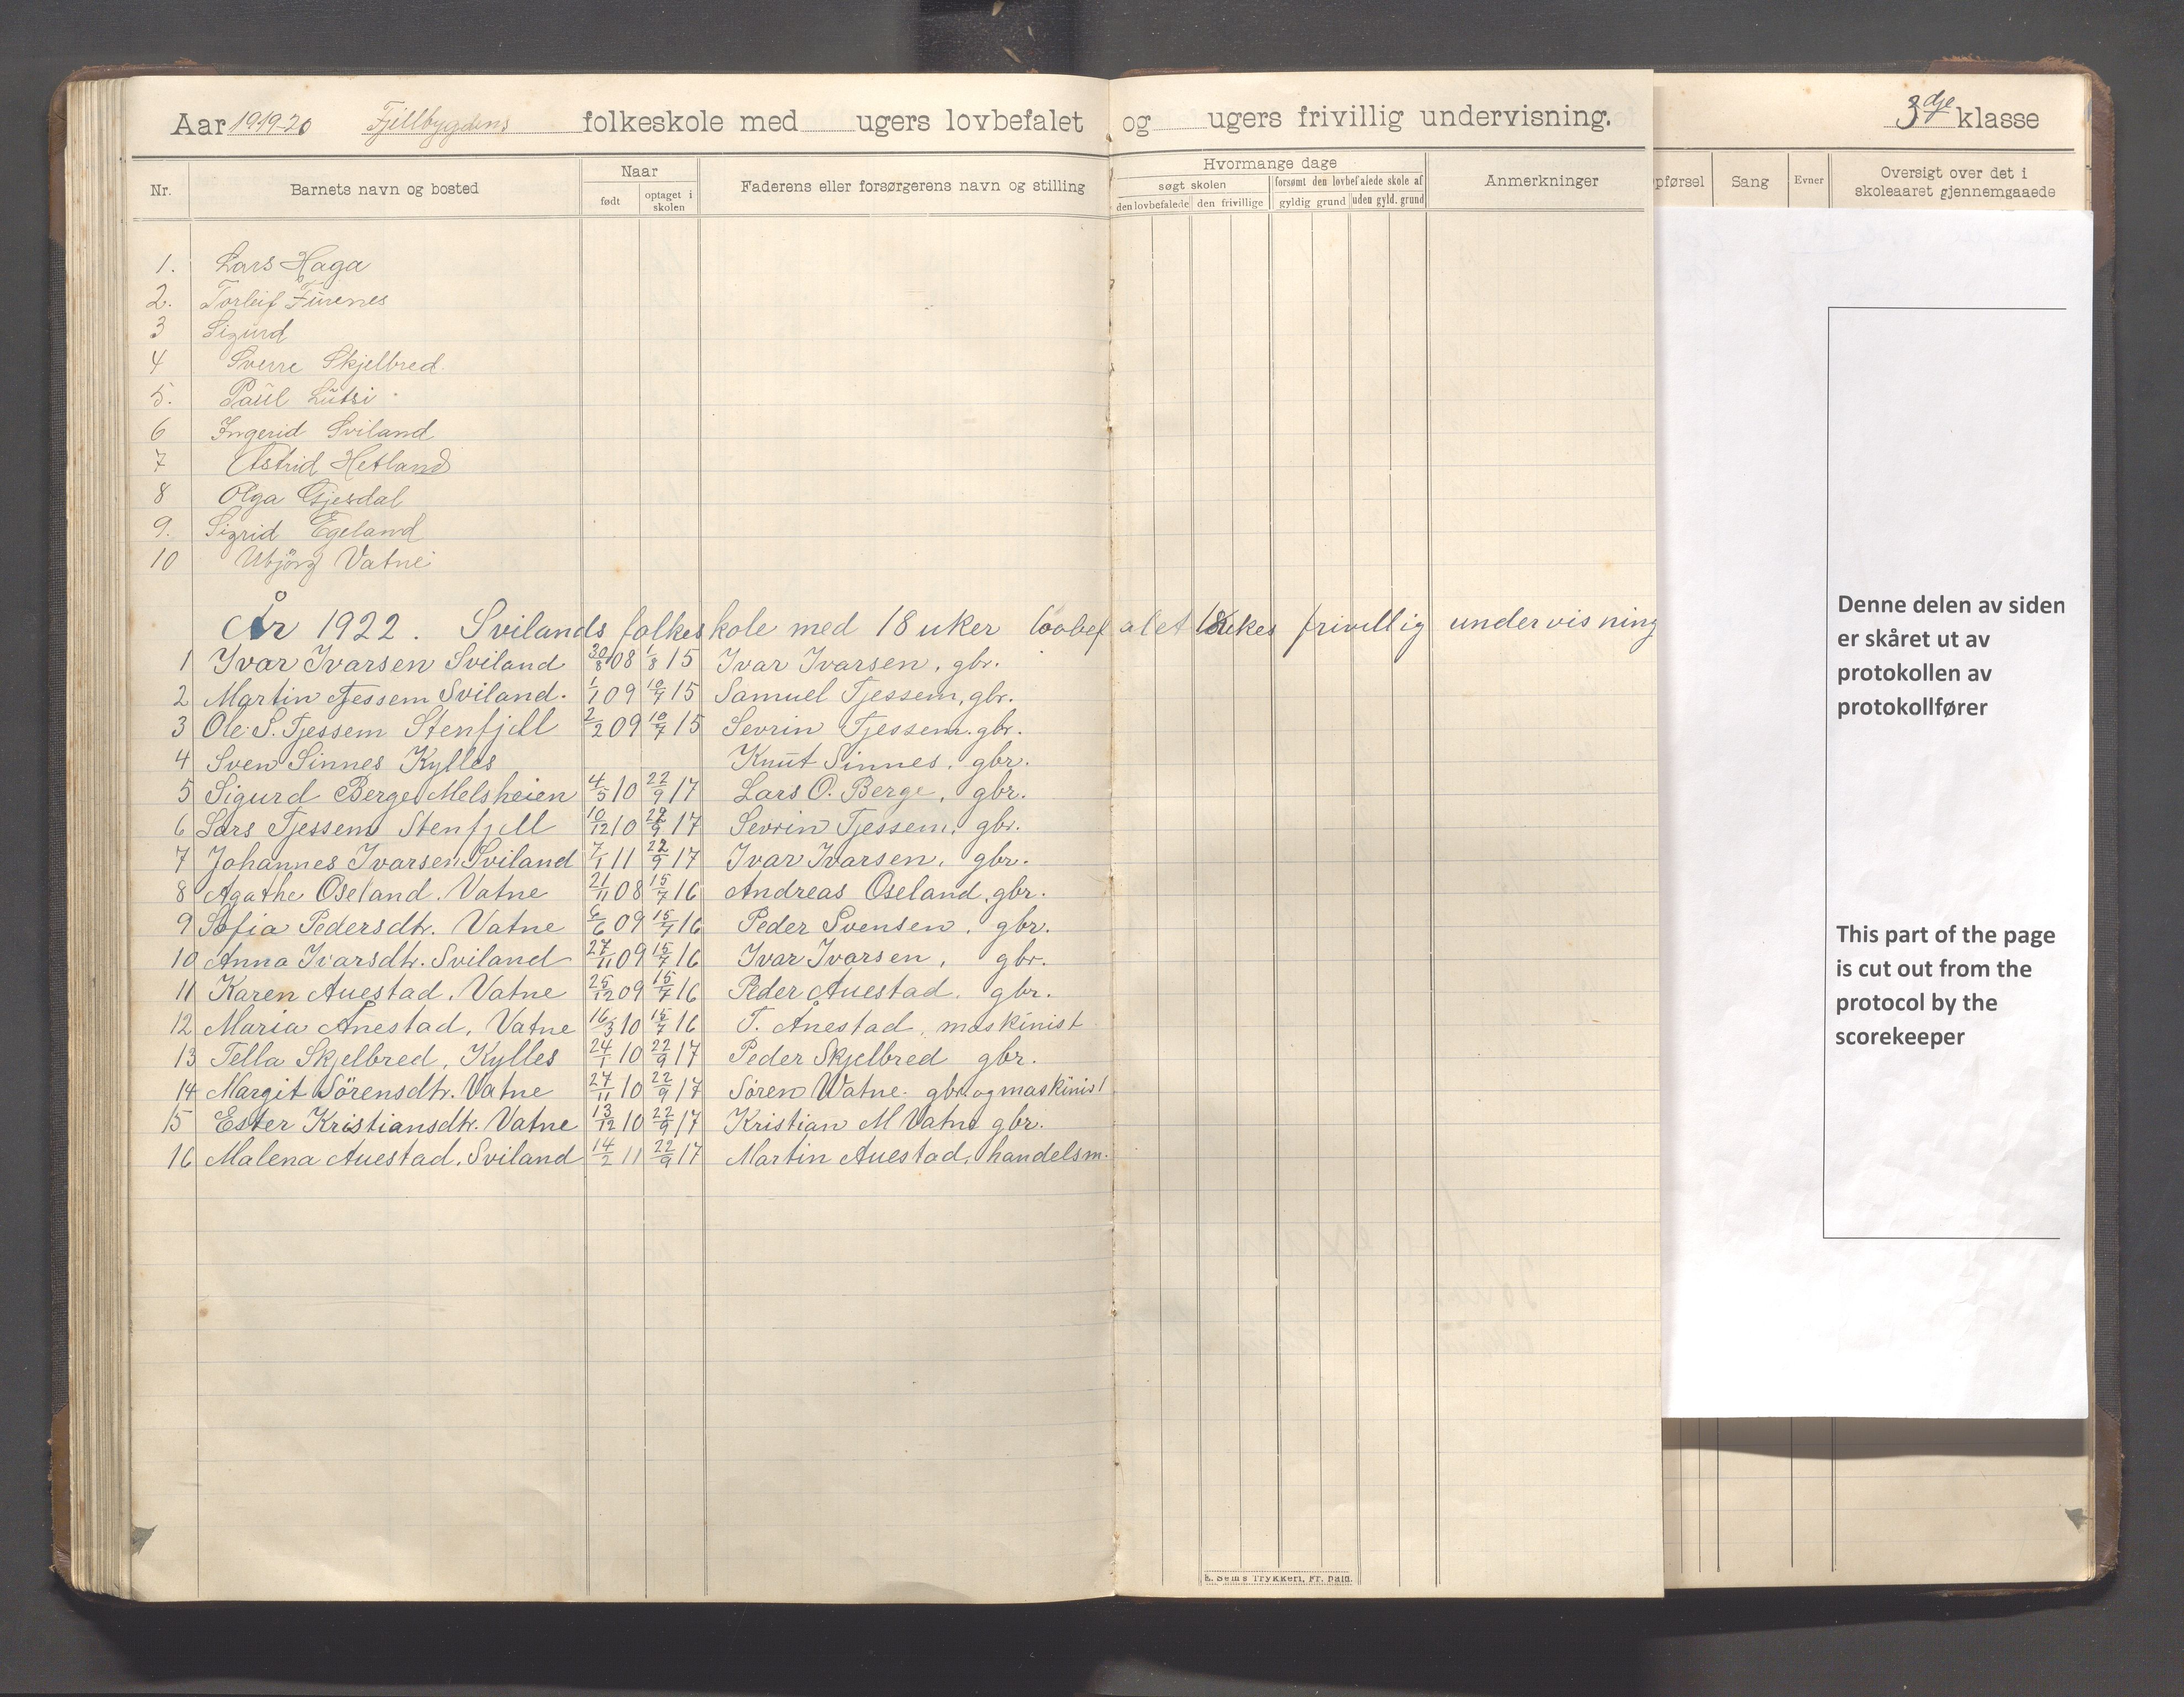 Aar 1919-20 Fjellbygdens folkeskole med ugers lovbefalet og ugers frivillig undervisning. 3dje klasse
Nr. Barnets navn og bosted Naar født optaget i skolen Faderens eller forsørgerens navn og stilling
Hvormange dage
søgt skolen forsømt den lovbefalede skole af
den lovbefalede den frivillige gyldig grund uden gyld. grund
Anmerkninger
pførsel Sang Evner Oversigt over det i
skoleaaret gjennemgaaede
1. Lars Haga
2. Torleif Furenes
3 Sigurd
4 Sverre Skjelbred.
5. Paul Lutsi
6 Ingerid Sviland
7 Astrid Hetland
8 Olga Gjesdal
9. Sigrid Egeland
10 Vatne
År 1922. Svilands folkeskole med 18 uker lovbefalet ukes frivillig undervisning
1 Ivar Ivarsen Sviland 30/8 08 1/8 15 Ivar Ivarsen, gbr.
2 Martin Tjessem Sviland. 1/1 09 10/7 15 Samuel Tjessem, gbr.
3 Ole S. Tjessem Stenfjell 2/2 09 10/7 15 Sevrin Tjessem. gbr.
4 Sven Sinnes Kylles Knut Sinnes. gbr.
5 Sigurd Berge Melsheien 4/5 10 22/9 17 Lars O. Berge, gbr.
6 Lars Tjessem Stenfjell 10/12 10 22/9 17 Sevrin Tjessem, gbr.
7 Johannes Ivarsen Sviland 7/1 11 22/9 17 Ivar Ivarsen, gbr.
8 Agathe Oseland. Vatne 21/11 08 15/7 16 Andreas Oseland, gbr.
9 Sofia Pedersdtr. Vatne 6/6 09 15/7 16 Peder Svensen, gbr.
10 Anna Ivarsdtr. Sviland 27/11 09 15/7 16 Ivar Ivarsen, gbr.
11 Karen Auestad. Vatne 25/12 09 15/7 16 Peder Auestad. gbr.
12 Maria Ånestad, Vatne 16/3 10 15/7 16 T. Ånestad, maskinist
13 Tella Skjelbred, Kylles 24/1 10 22/9 17 Peder Skjelbred gbr.
14 Margit Sörensdtr. Vatne 27/11 10 22/9 17 Sören Vatne. gbr. og maskinist
15 Ester Kristiansdtr. Vatne 13/12 10 22/9 17 Kristian M Vatne gbr.
16 Malena Auestad. Sviland 14/2 11 22/9 17 Martin Auestad, handelsm.
E. Sems Trykkeri, Fr.hald.
Denne delen av siden
er skåret ut av
protokollen av
protokollfører
This part of the page
is cut out from the
protocol by the
scorekeeper